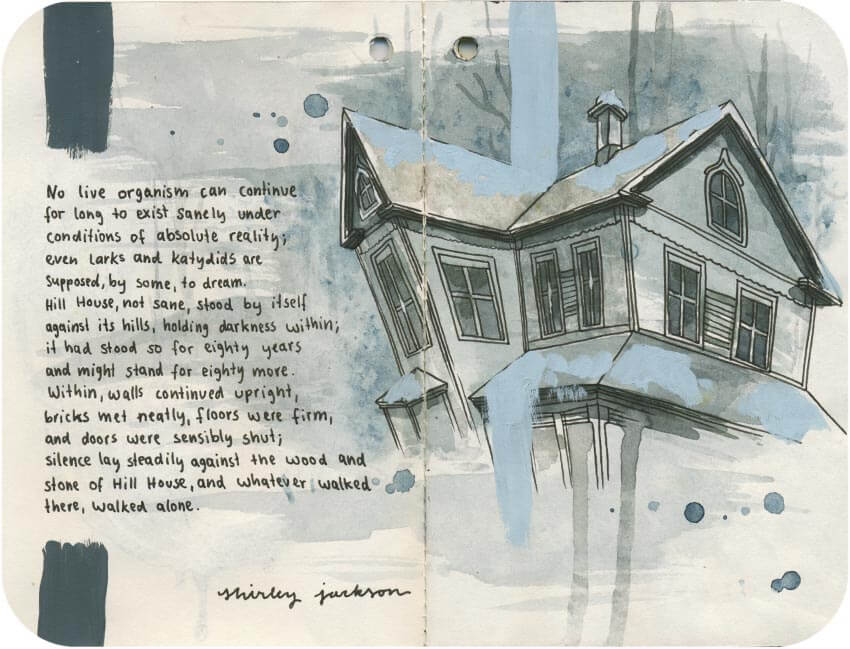 No live organism can continue
for long to exist sanely under
conditions of absolute reality;
even larks and katydids are
supposed, by some, to dream.
Hill House, not sane, stood by itself
against its hills, holding darkness within;
it had stood so for eighty years
and might stand for eighty more.
Within, walls continued upright,
bricks met neatly, floors were firm,
and doors were sensibly shut;
silence lay steadily against the wood and
stone of Hill House, and whatever walked
there, walked alone.
shirley jackson